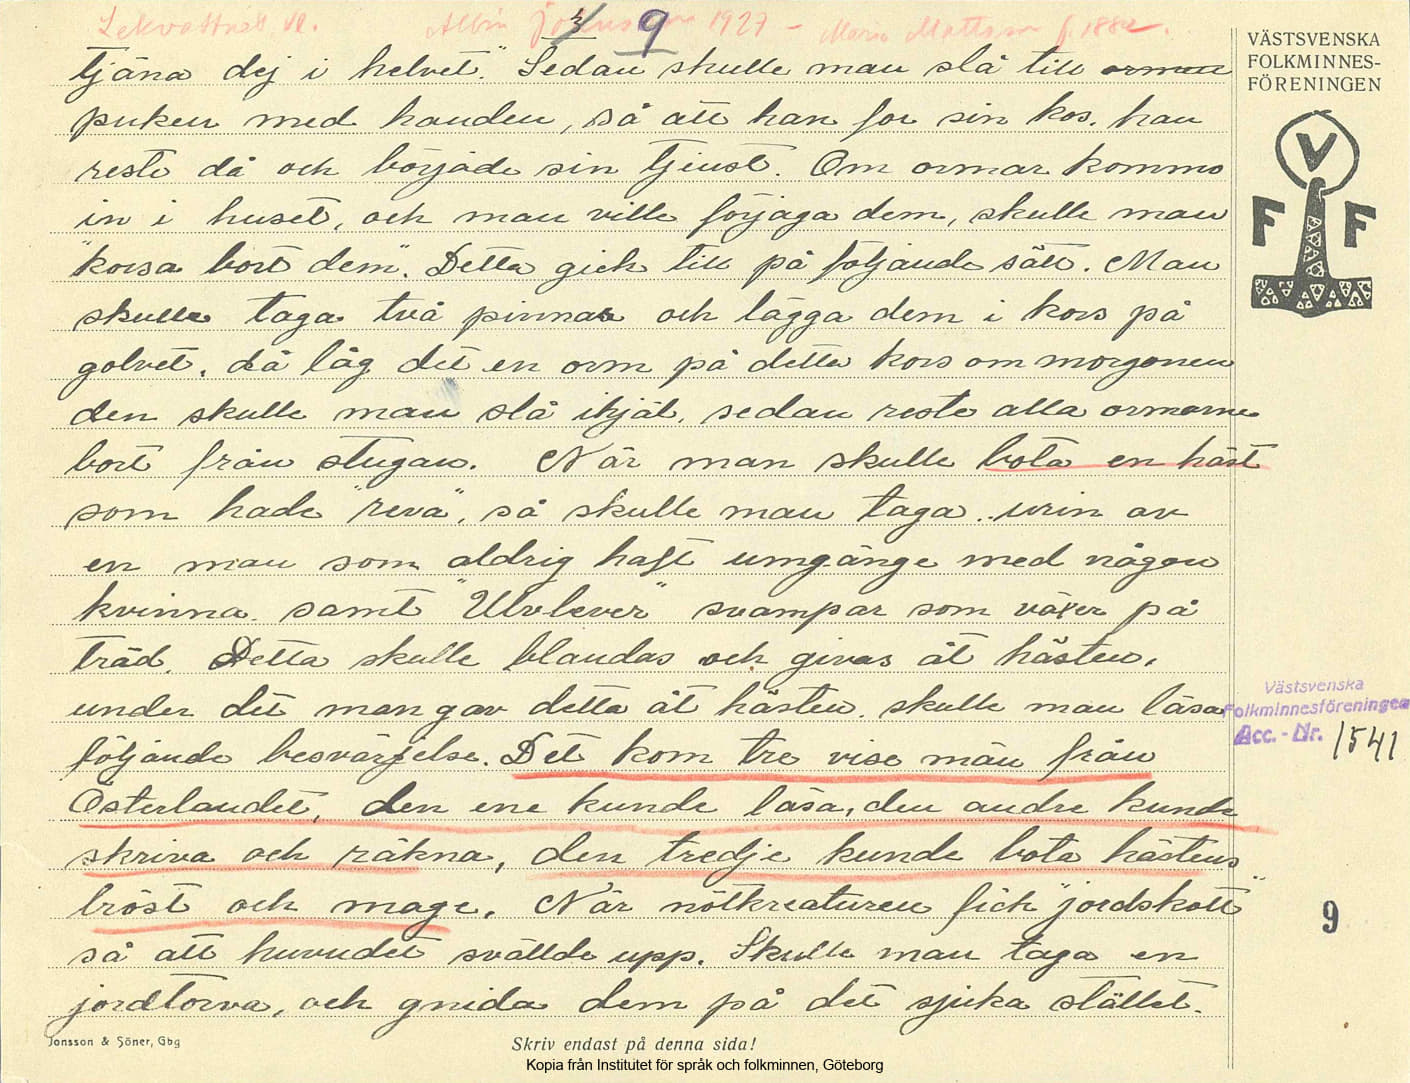 Lekvattnet Vl. 3/ 9 Albin 1927 - Maria Mattsson f. 1882.
tjäna dej i helvet." Sedan skulle man slå till ormen
puken med handen, så att han for sin kos. han
reste då och började sin tjenst. Om ormar kommo
in i huset, och man ville förjaga dem, skulle man
"korsa bort dem". Detta gick till på följande sätt. Man
skulle taga två pinnar och lägga dem i kors på
golvet, då låg det en orm på detta kors om morgonen
den skulle man slå ihjäl, sedan reste alla ormarne
bort från stugan. När man skulle bota en häst
som hade "revä", så skulle man taga urin av
en man som aldrig haft umgänge med någon
kvinna. samt "Ulvlever" svampar som växer på
träd. Detta skulle blandas och givas åt hästen,
under det man gav detta åt hästen, skulle man läsa
följande besvärjelse. Det kom tre vise män från
Österlandet, den ene kunde läsa, den andre kunde
skriva och räkna, den tredje kunde bota hästens
bröst och mage. När nötkreaturen fick "jordskott"
så att huvudet svällde upp. Skulle man taga en
jordtorva, och gnida dem på det sjuka stället.
VÄSTSVENSKA
FOLKMINNES-
FÖRENINGEN
V
F F
Västsvenska
Folkminnesföreningen
Acc.-Nr. 1541
9
Jonsson & Söner, Gbg
Skriv endast på denna sida!
Kopia från Institutet för språk och folkminnen, Göteborg